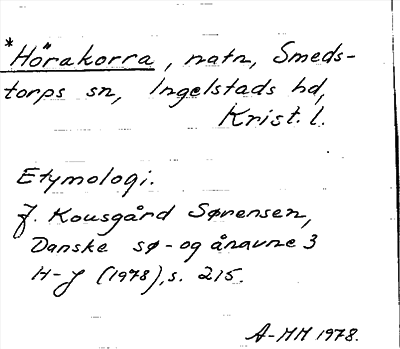 *Hörakorra, natn, Smeds-
torps sn, Ingelstads hd,
Krist. l.
Etymologi.
J. Kousgård Sørensen,
Danske sø- og ånavne 3
H-J (1978), s. 215.
A-MM 1978.